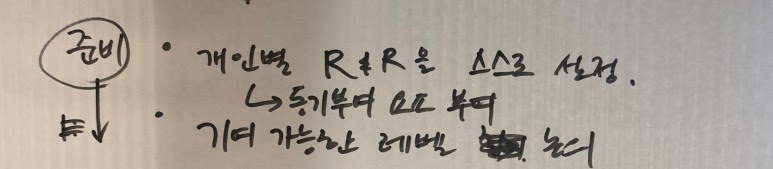 준비 • 개인별 R&R을 스스로 설정.
↳ 동기부여 요소 부여
• 기여 가능한 레벨 논의